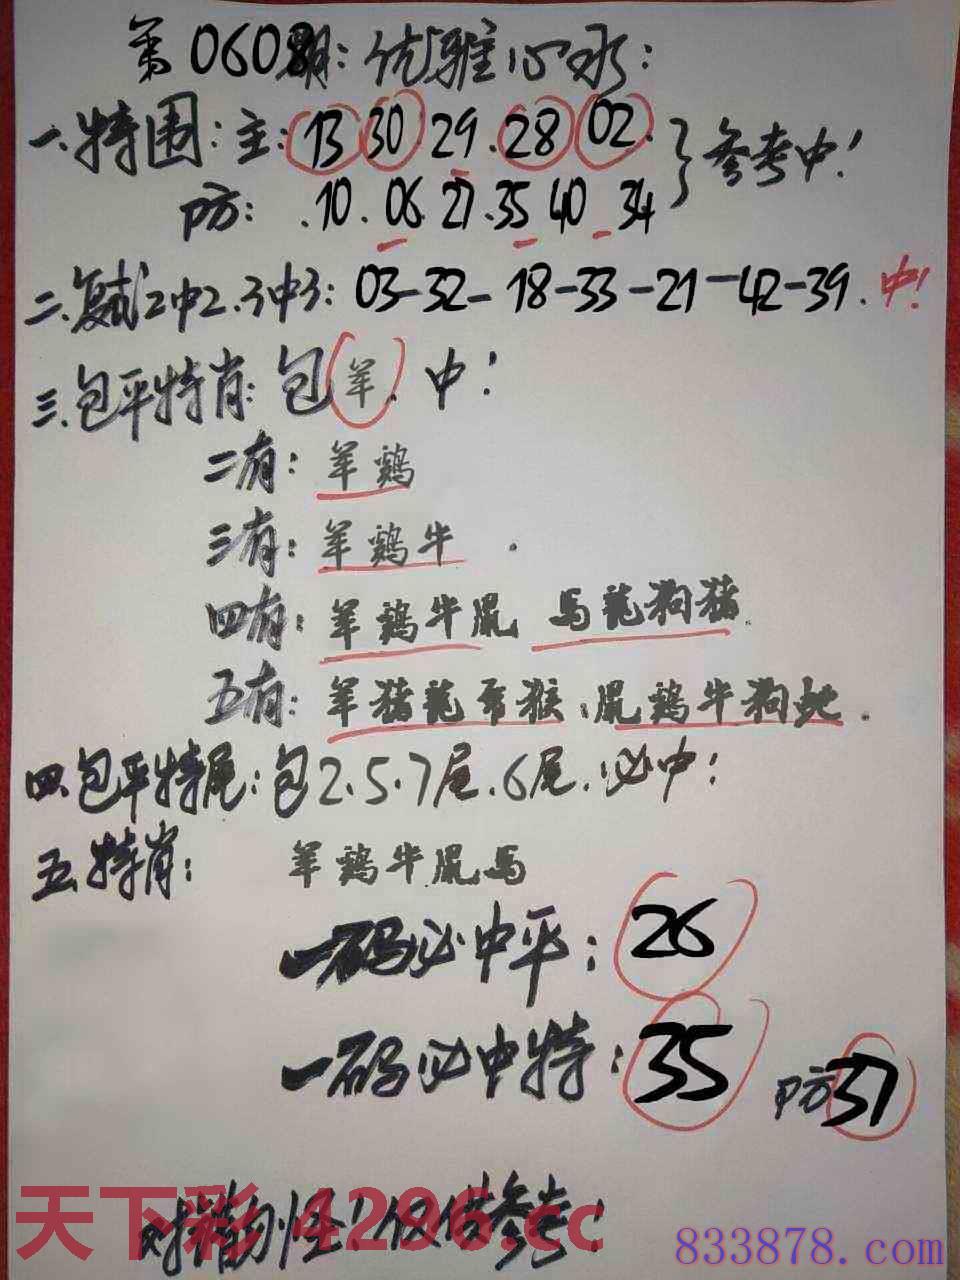 第0608期:优雅心水:
一.特围:主:13 30 29.28 02.
防:.10.06 27.35 40 34
}参考中!
二.复式2中2.3中3:03-32-18-33-21-42-39.中!
三.包平特肖:包羊.中!
二有:羊鷄
三有:羊鷄牛.
四有:羊鷄牛鼠 馬龍狗猪.
五有:羊猪龍兔猴.鼠鷄牛狗蛇.
四.包平特尾:包2.5.7尾.6尾.必中!
五.特肖: 羊鷄牛鼠馬
一码必中平:26
一码必中特:35 防37
对错勿怪!仅供参考!
天下彩 4296.cc
833878.com